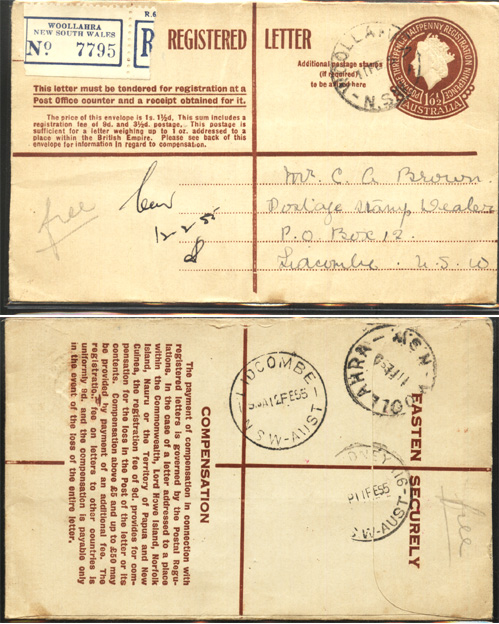 R.6
WOOLLAHRA
NEW SOUTH WALES
No 7795
R
REGISTERED LETTER
This letter must be tendered for registration at a
Post Office counter and a receipt obtained for it.
The price of this envelope is 1s. 1½d. This sum includes a
registration fee of 9d. and 3½d. postage. This postage is
sufficient for a letter weighing up to 1 oz. addressed to a
place within the British Empire. Please see back of this
envelope for information in regard to compensation.
Additional postage stamps
(if required)
to be affixed here
POSTAGE HALFPENNY REGISTRATION NINEPENCE
10½
AUSTRALIA
WOOLLAHRA
N.S.W
free
12-2-55
Mr. C. A. Brown.
Postage Stamp Dealer
P.O. Box 12.
Lidcombe. N.S.W
COMPENSATION
The payment of compensation in connection with
registered letters is governed by the Postal Regu-
lations. In the case of a letter addressed to a place
within the Commonwealth, Lord Howe Island, Norfolk
Island, Nauru or the Territory of Papua and New
Guinea, the registration fee of 9d. provides for com-
pensation for the loss in the Post of the letter or its
contents. Compensation above £5 and up to £50 may
be provided by payment of an additional fee. The
registration fee on letters to other countries is
uniformly 9d. and the compensation is payable only
in the event of the loss of the entire letter.
LIDCOMBE
12FE55
N.S.W-AUST
WOOLLAHRA-N.S.W
11FE
SYDNEY
11FE55
N.S.W-AUST
FASTEN SECURELY
free